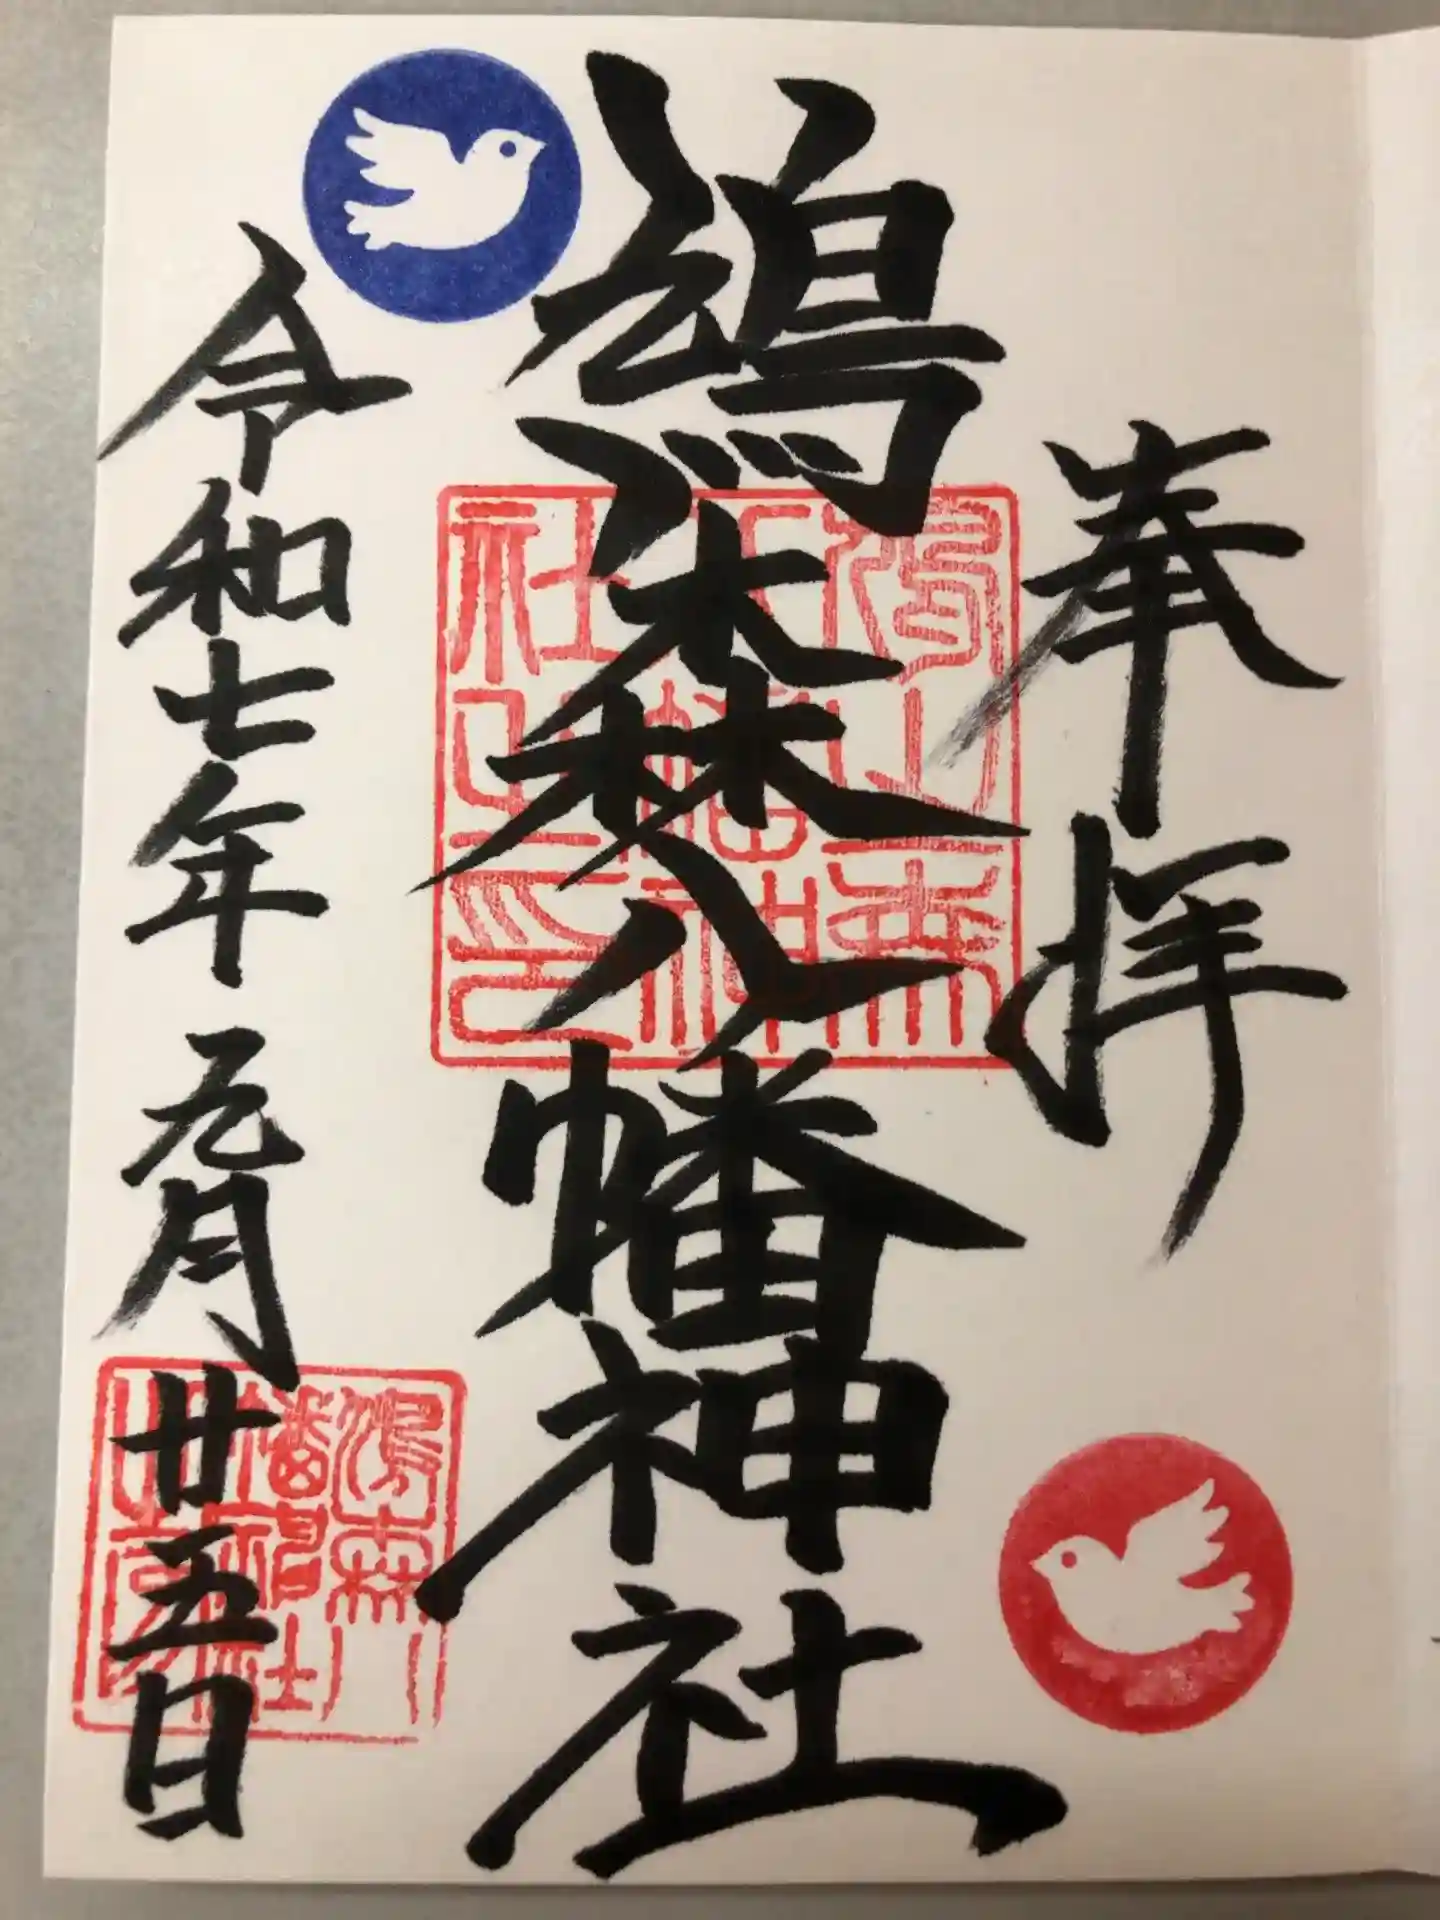 奉拝
鳩森八幡神社
令和七年元月廿五日
鳩之森
八幡神
社之印
鳩森八
幡神社
之印